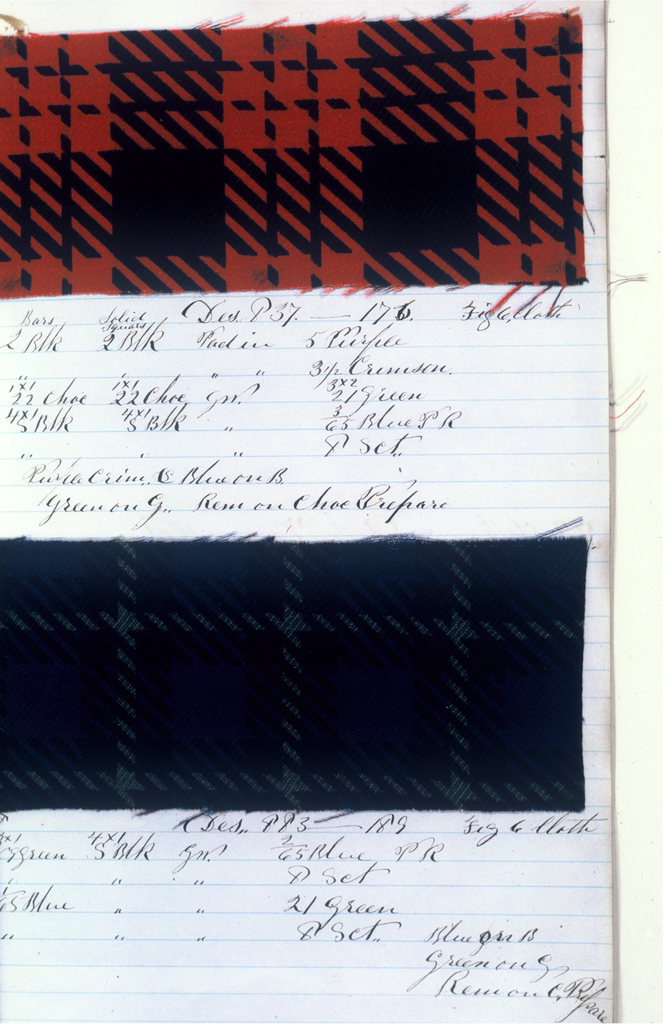 Bars Solid Squares Des. P37. — 176. Fig 6. Cloth
2 Blk 2 Blk Pad in 5 Purple
" " " 3½ Crimson.
1x1 1x1 3x2
22 Choc 22 Choc Gr". 21 Green
4x1 4x1 3
5 Blk 5 Blk " 65 Blue PR
" " " 8 Set.
Purple Crim. & Blue on B.
Green on G.. Rem on Choc Prepare
Des.. 983 — 189 Fig 6 Cloth
4x1 2
Green 5 Blk Gr". 65 Blue PR
" " " 8 Set
65 Blue " " 21 Green
" " " 8 Set. Blue on B
Green on G.
Rem on C. Prepare